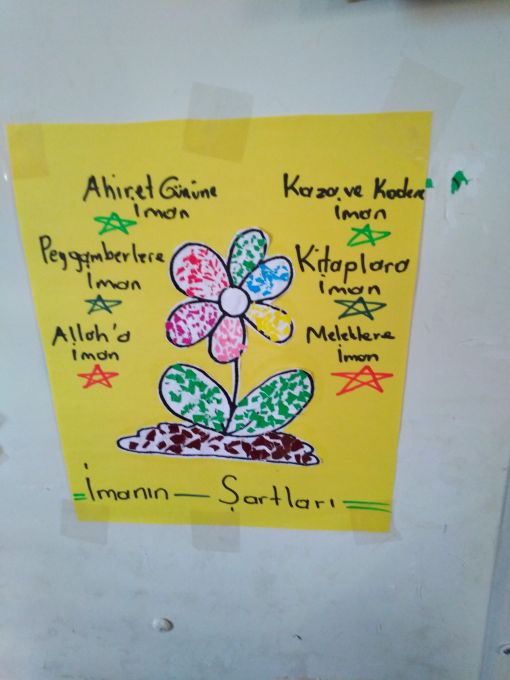 Ahiret Gününe
İman
Peygamberlere
İman
Allah'a
iman
Kaza ve Kadere
İman
Kitaplara
iman
Meleklere
İman
İmanın — Şartları